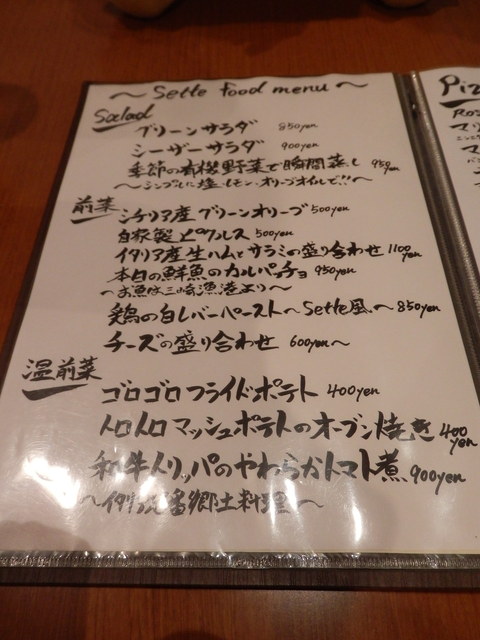 ～ Sette food menu ～
Salad
グリーンサラダ 850yen
シーザーサラダ 900yen
季節の有機野菜で瞬間蒸し 950yen
～シンプルに塩、レモン、オリーブオイルで!!～
前菜
シチリア産グリーンオリーブ 500yen
自家製ピクルス 500yen
イタリア産生ハムとサラミの盛り合わせ 1100yen
本日の鮮魚のカルパッチョ 950yen
～お魚は三崎漁港より～
鶏の白レバーペースト～Sette風～ 850yen
チーズの盛り合わせ 600yen～
温前菜
ゴロゴロフライドポテト 400yen
トロトロマッシュポテトのオーブン焼き 400yen
和牛トリッパのやわらかトマト煮 900yen
郷土料理～
Piz